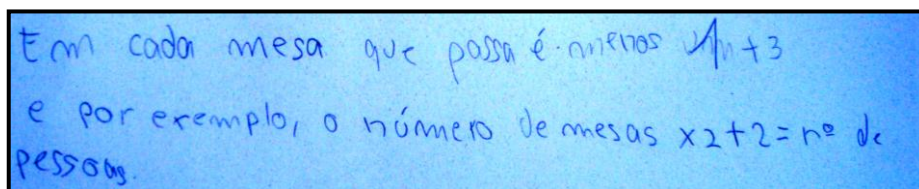 Em cada mesa que passa é menos +3
e por exemplo, o número de mesas x2+2=nº de
pessoas.